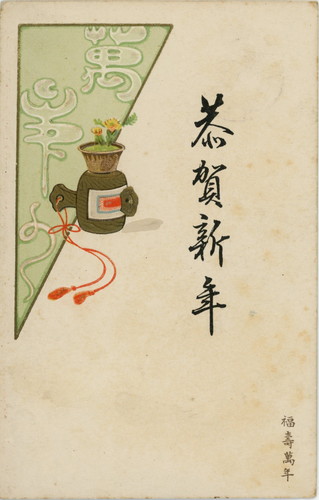 恭賀新年
福壽萬年
萬
年